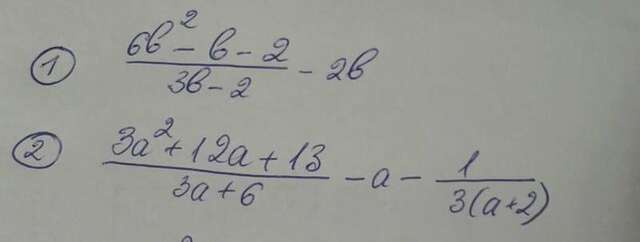 ① (6b² - b - 2)/(3b - 2) - 2b
② (3a² + 12a + 13)/(3a + 6) - a - 1/(3(a+2))